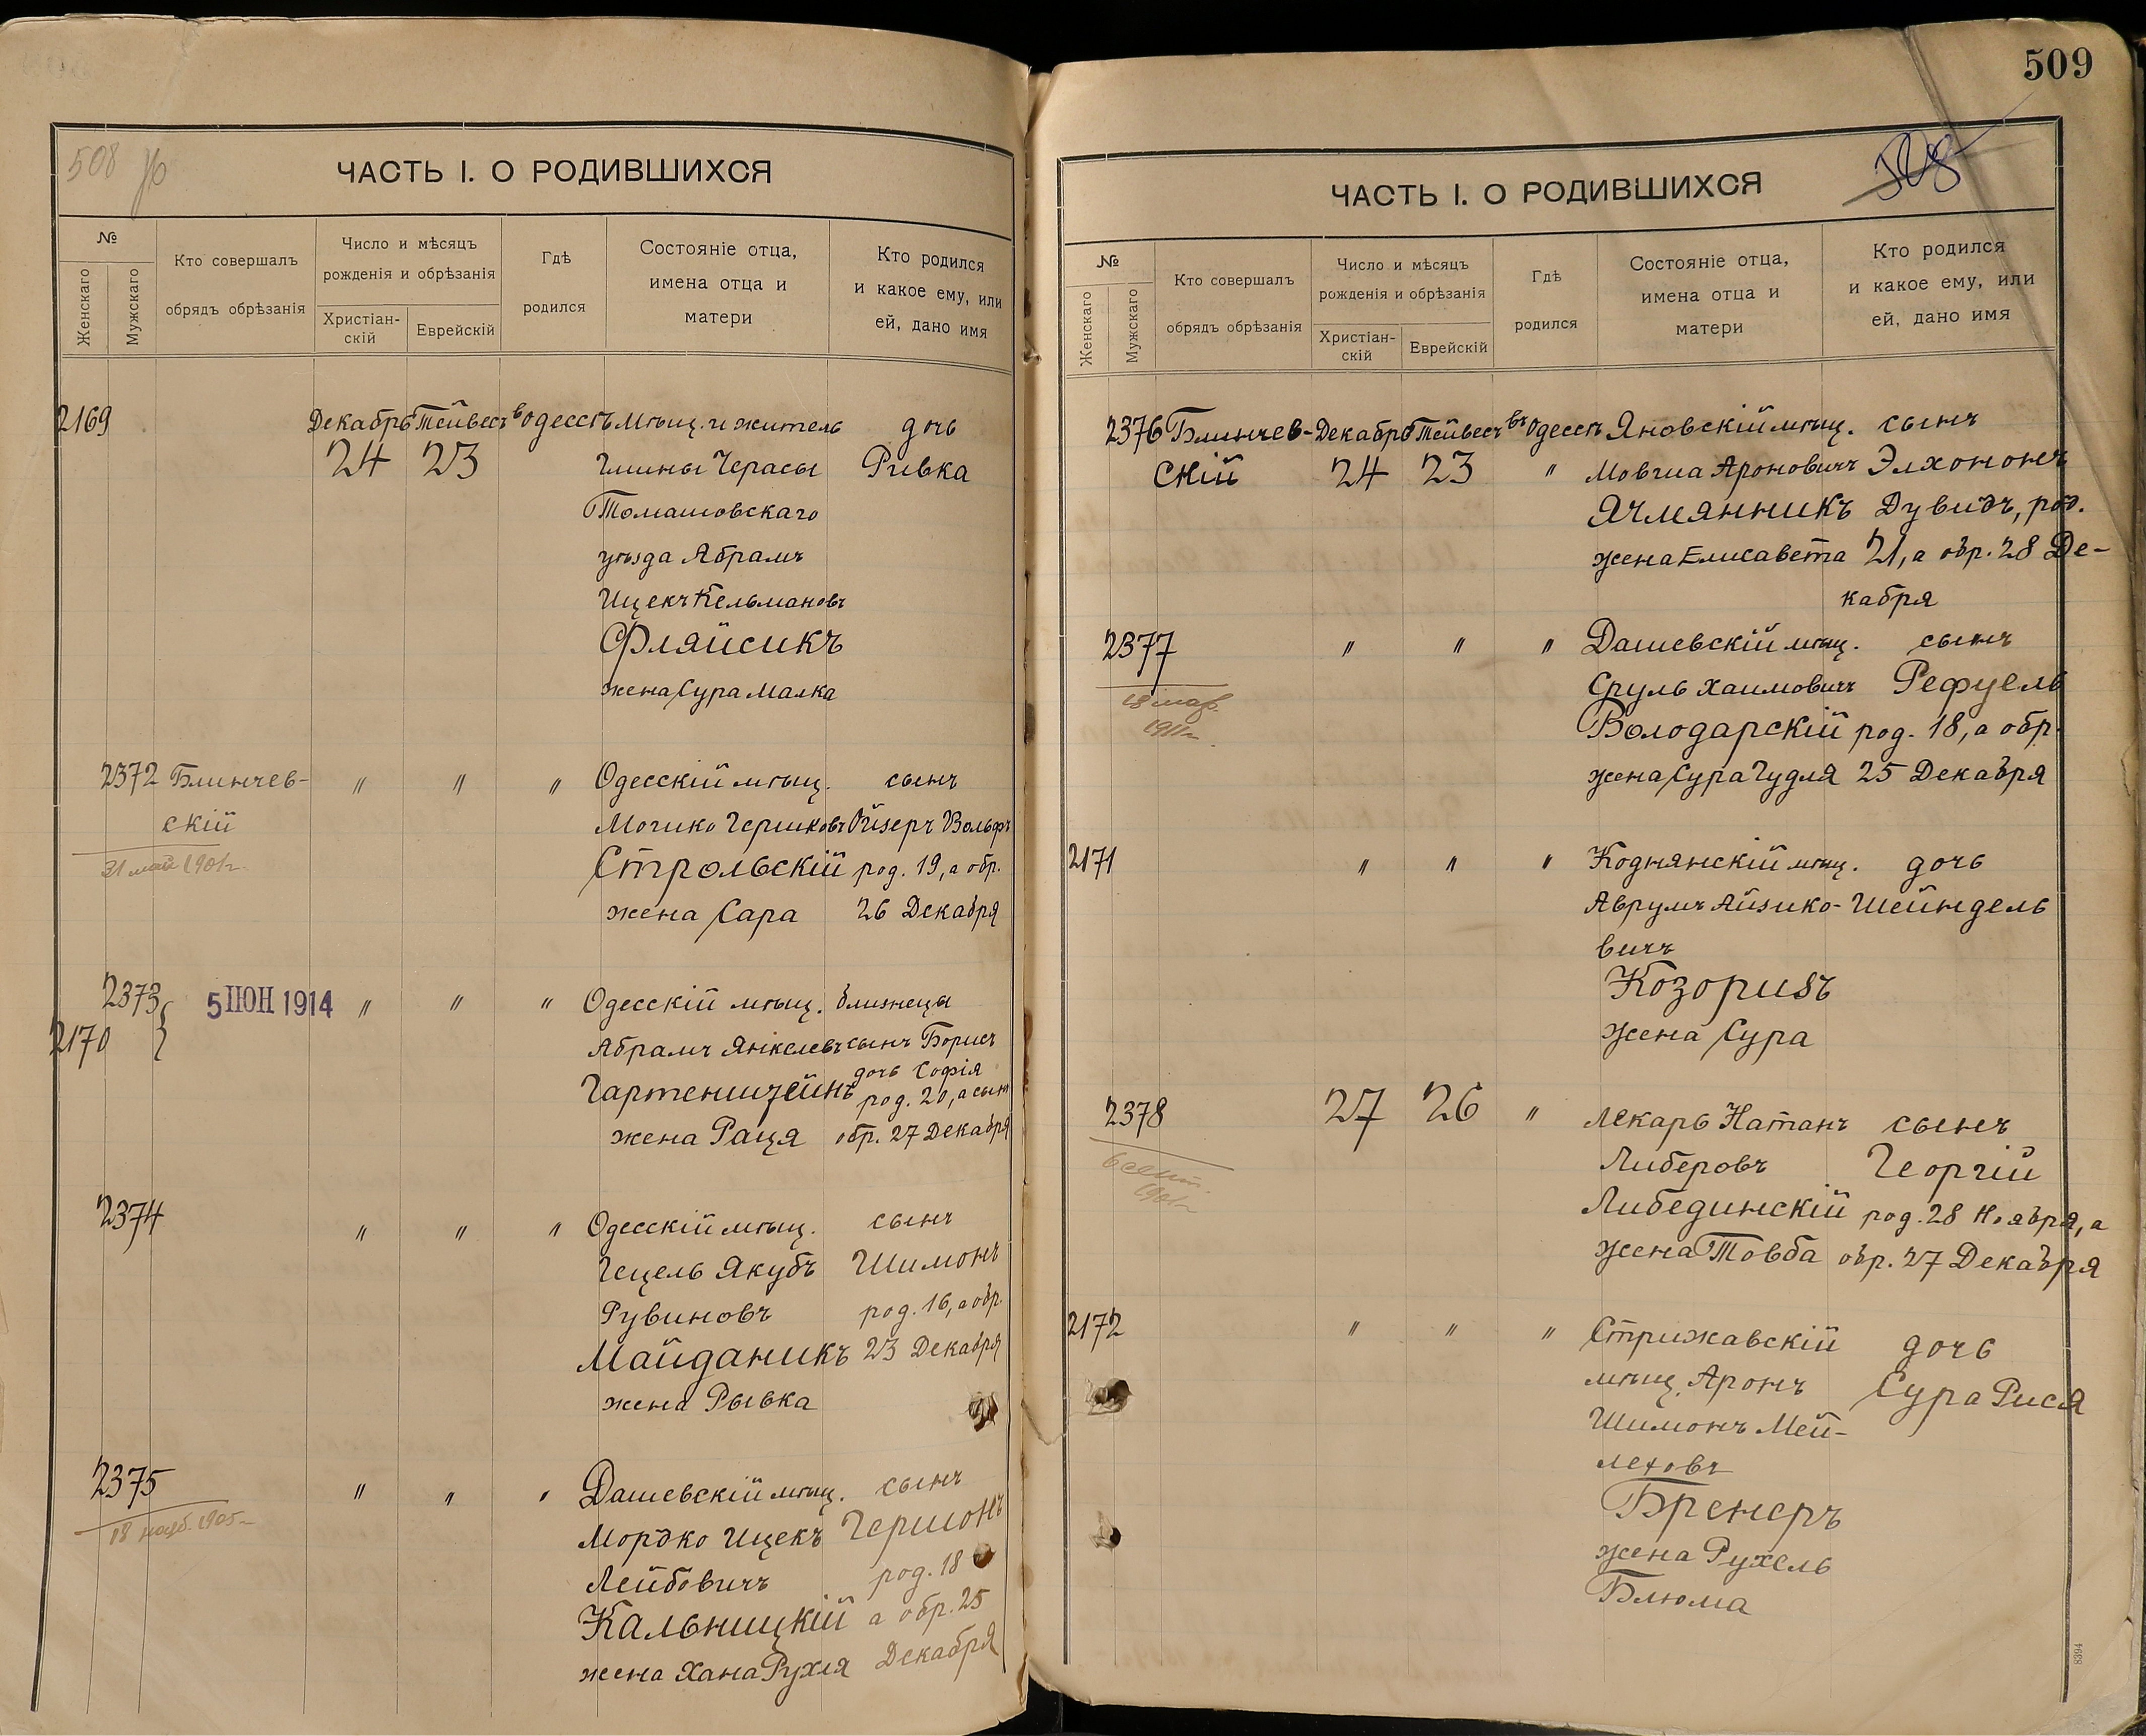 508 об
ЧАСТЬ I. О РОДИВШИХСЯ
№
Женскаго
Мужскаго
Кто совершалъ
обрядъ обрѣзанія
Число и мѣсяцъ
рожденія и обрѣзанія
Христіан-
скій
Еврейскій
Гдѣ
родился
Состояніе отца,
имена отца и
матери
Кто родился
и какое ему, или
ей, дано имя
2169 Декабрь Тейвесъ въ Одессѣ Мѣщ. и житель дочь
24 23 Гмины Черасы Ривка
Томашовскаго
уѣзда Абрамъ
Ицекъ Кельмановъ
Фляйсикъ
жена Сура Малка
2372 Блинчев- " " " Одесскій мѣщ. сынъ
скій Мошко Гершковъ Ойзеръ Вольфъ
31 май 1901г. Строльскій род. 19, а обр.
жена Сара 26 Декабря
2373 5 ІЮН 1914 " " " Одесскій мѣщ. близнецы
2170 Абрамъ Янкелевъ сынъ Борисъ
дочь Софія
Гартенштейнъ род. 20, а сынъ
жена Рація обр. 27 Декабря
2374 " " " Одесскій мѣщ. сынъ
Гецель Якубъ Шимонъ
Рувиновъ род. 16, а обр.
Майданикъ 23 Декабря
жена Рывка
2375 " " " Дашевскій мѣщ. сынъ
18 1905 Мордко Ицекъ Гершонъ
Лейбовичъ род. 18
Кальницкій а обр. 25
жена Хана Рухля Декабря
509
ЧАСТЬ I. О РОДИВШИХСЯ
№
Женскаго
Мужскаго
Кто совершалъ
обрядъ обрѣзанія
Число и мѣсяцъ
рожденія и обрѣзанія
Христіан-
скій
Еврейскій
Гдѣ
родился
Состояніе отца,
имена отца и
матери
Кто родился
и какое ему, или
ей, дано имя
2376 Блинчев- Декабрь Тейвесъ въ Одессѣ Яновскій мѣщ. сынъ
скій 24 23 " Мовша Ароновичъ Элхононъ
Ячмянникъ Дувидъ, род.
жена Елисавета 21, а обр. 28 Де-
кабря
2377 " " " Дашевскій мѣщ. сынъ
18 мар. Сруль Хаимовичъ Рефуель
1911г. Володарскій род. 18, а обр.
жена Сура Гудля 25 Декабря
2171 " " " Коднянскій мѣщ. дочь
Аврумъ Айзико- Шейндель
вичъ
Козоризъ
жена Сура
2378 27 26 " Лекарь Натанъ сынъ
6 сент. Либеровъ Георгій
1901г. Либединскій род. 28 Ноября, а
жена Товба обр. 27 Декабря
2172 " " " Стрижавскій дочь
мѣщ. Аронъ Сура Рися
Шимонъ Мей-
леховъ
Бренеръ
жена Рухель
Блюма
8394